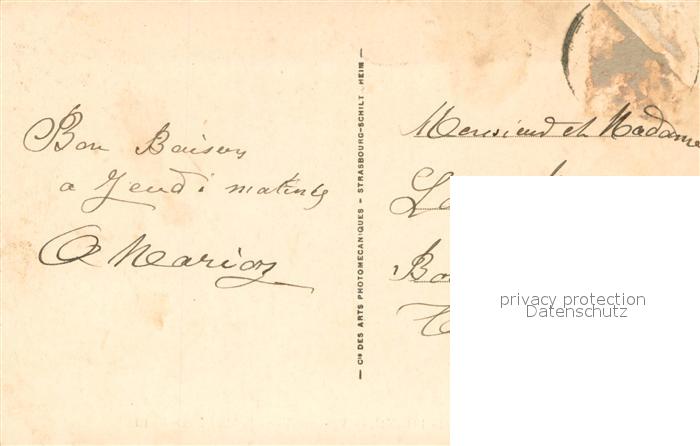 Bon Baisers
a Jeudi matin
O Marion
— Cie DES ARTS PHOTOMECANIQUES – STRASBOURG-SCHILTHEIM —
Monsieur et Madame
privacy protection
Datenschutz